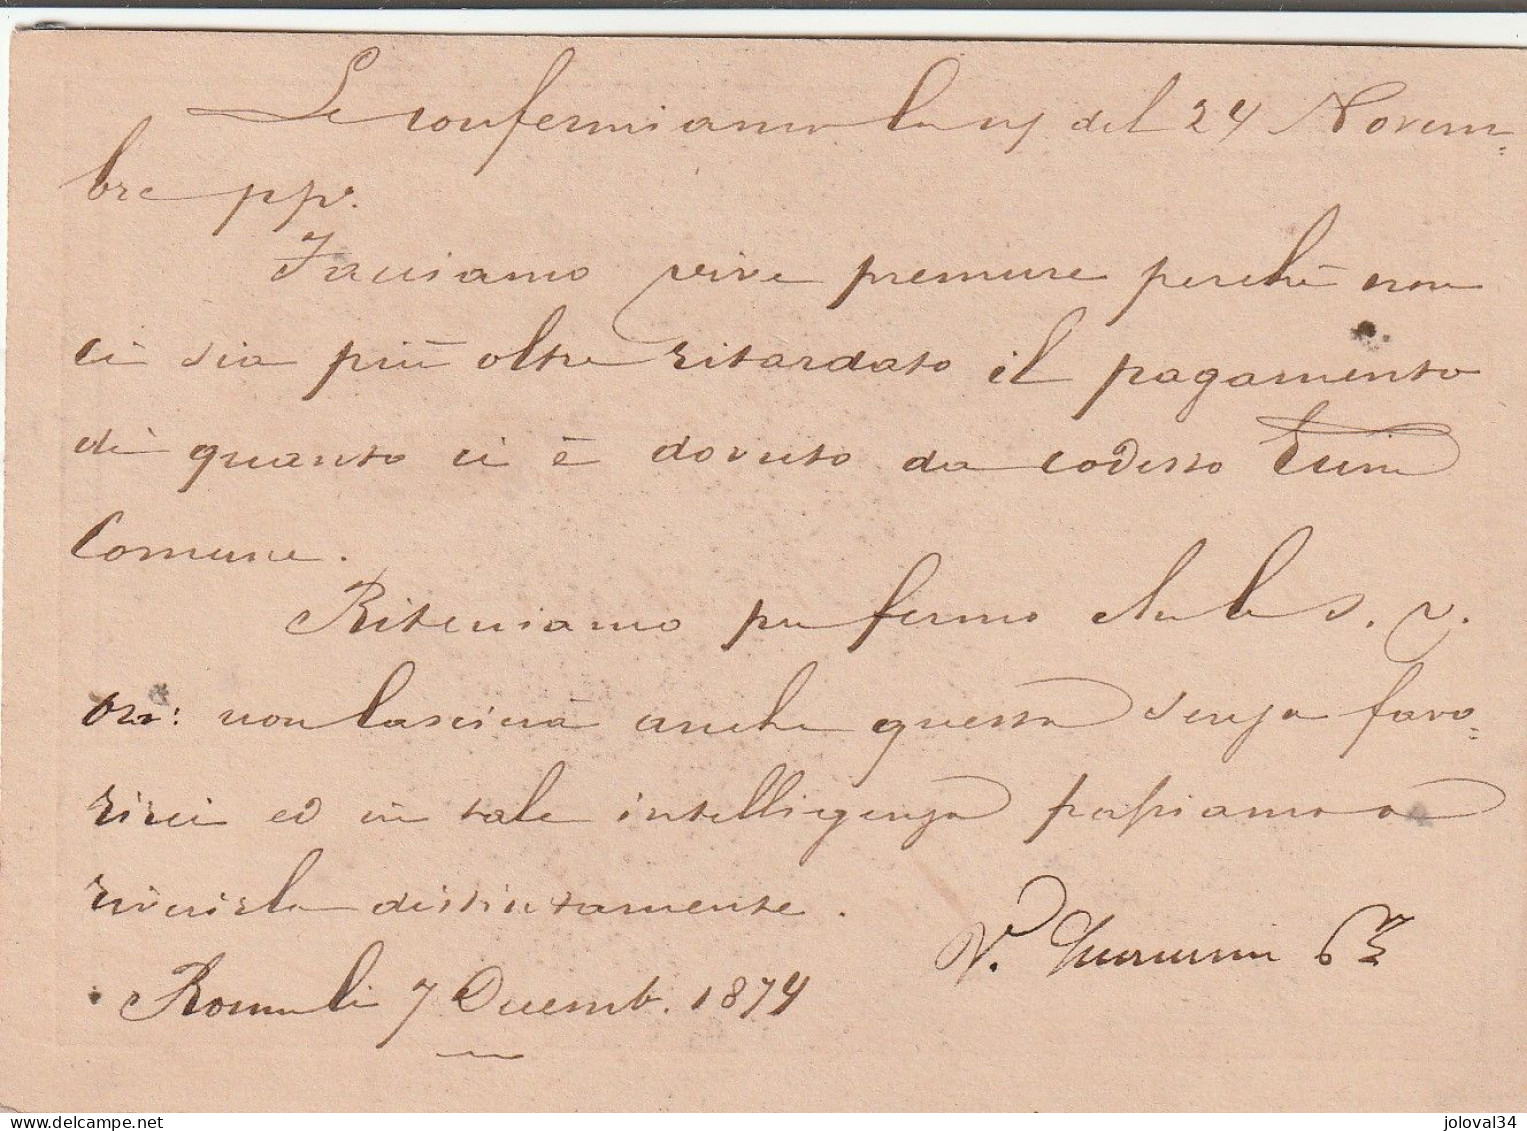 Le confermiamo la ns del 24 Novem=
bre pp.
Facciamo vive premure perchè non
ci sia più oltre ritardato il pagamento
di quanto ci è dovuto da codesto
Comune.
Riteniamo per fermo che la S. V.
On: non lascierà anche questa senza favo=
rirci ed in tale intelligenza passiamo a
riverirla distintamente.
7 Decemb. 1874
joloval34